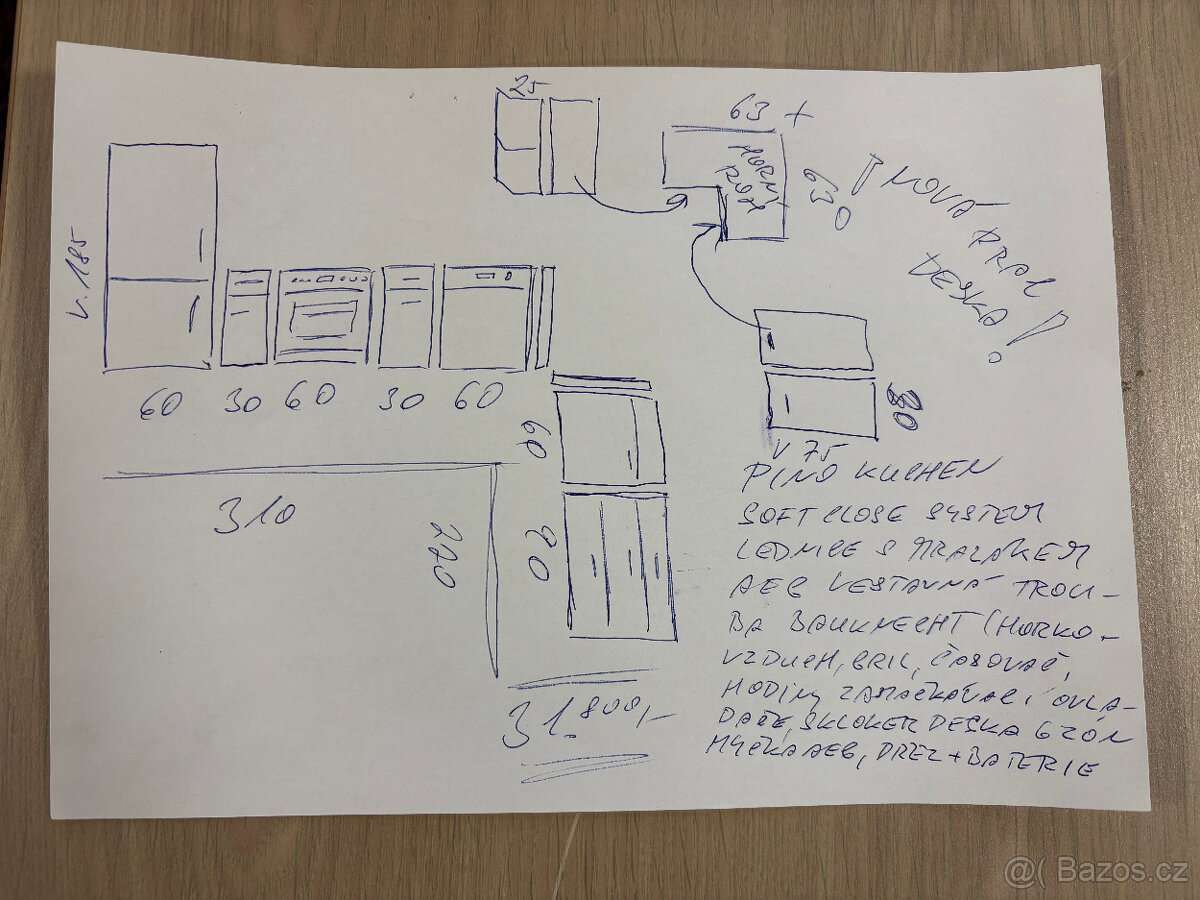 25
63 +
63
HORNÍ
ROH
! NOVÁ PRAC
DESKA!
V. 185
60 30 60 30 60
60
90
80
V 75
310
220
31.800,-
PINO KUCHEN
SOFT CLOSE SYSTEM
LEDNICE S MRAZÁKEM
AEG VESTAVNÁ TROU-
BA BAUKNECHT (HORKO-
VZDUCH, GRIL, ČASOVAČ,
HODINY ZAMAČKÁVACÍ OVLA-
DAČE, SKLOKER DESKA 6 ZÓN
MYČKA AEG, DŘEZ + BATERIE
@( Bazos.cz